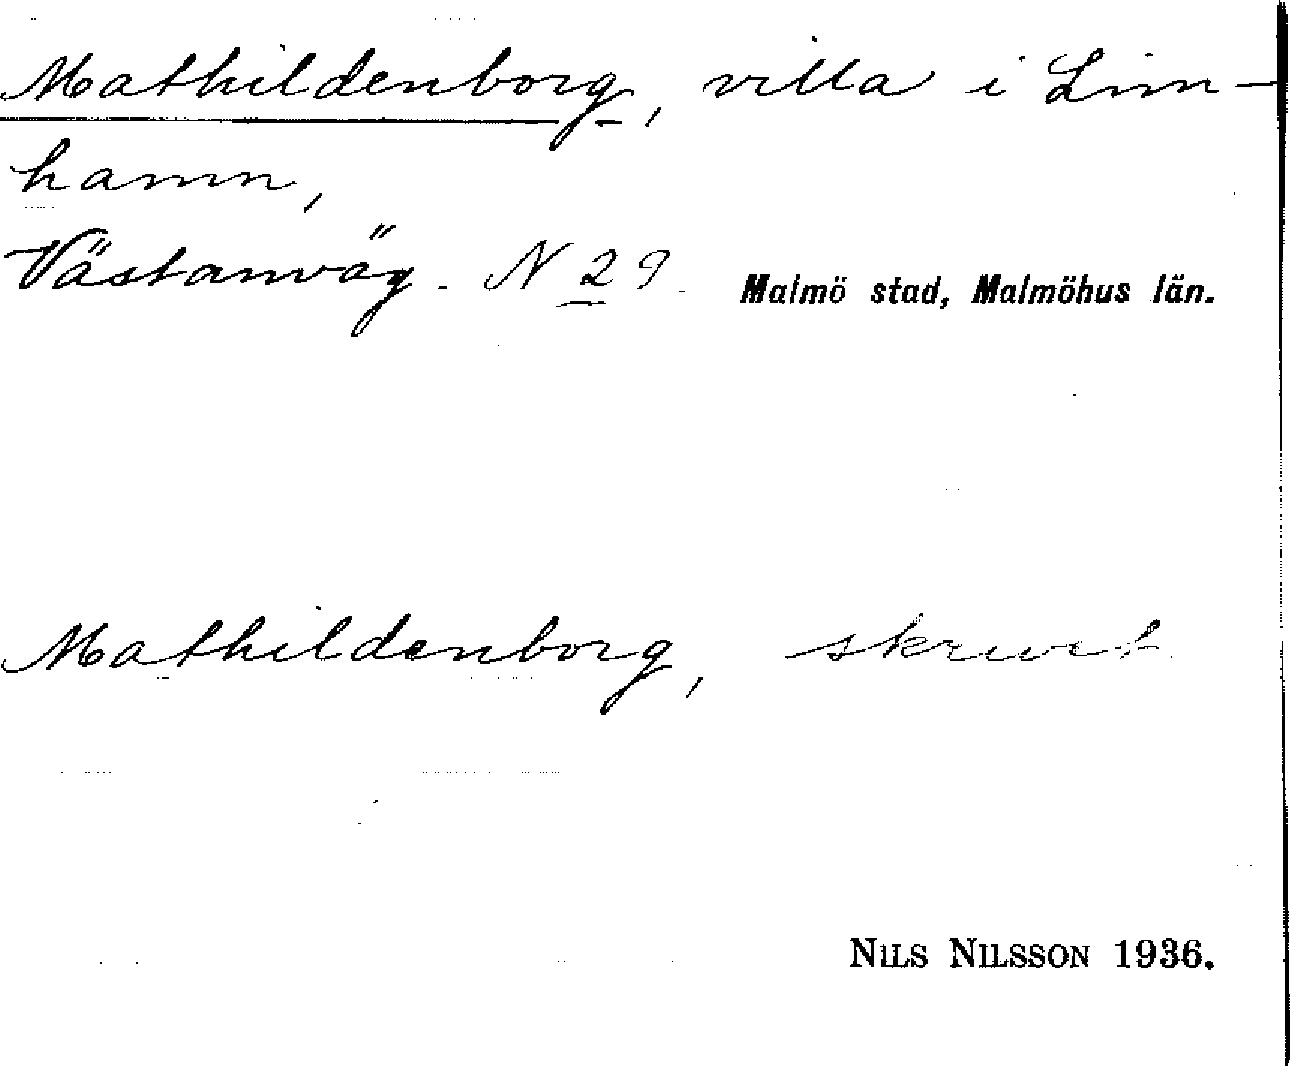 Mathildenborg, villa i Lim-
hamn,
Västanväg. N 29. Malmö stad, Malmöhus län.
Mathildenborg, skrivet
NILS NILSSON 1936.